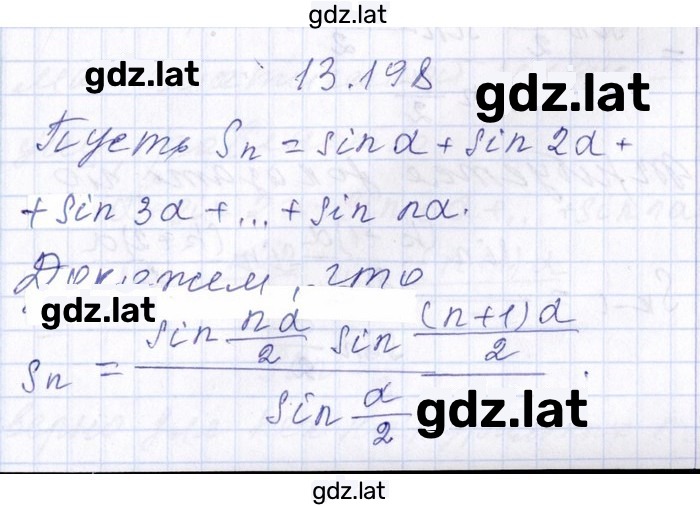 gdz.lat
gdz.lat
13.198
gdz.lat
Пусть Sn = sin α + sin 2α +
+ sin 3α + ... + sin nα.
Докажем, что
gdz.lat
Sn = \frac{sin \frac{nα}{2} sin \frac{(n+1)α}{2}}{sin \frac{α}{2}}.
gdz.lat
gdz.lat